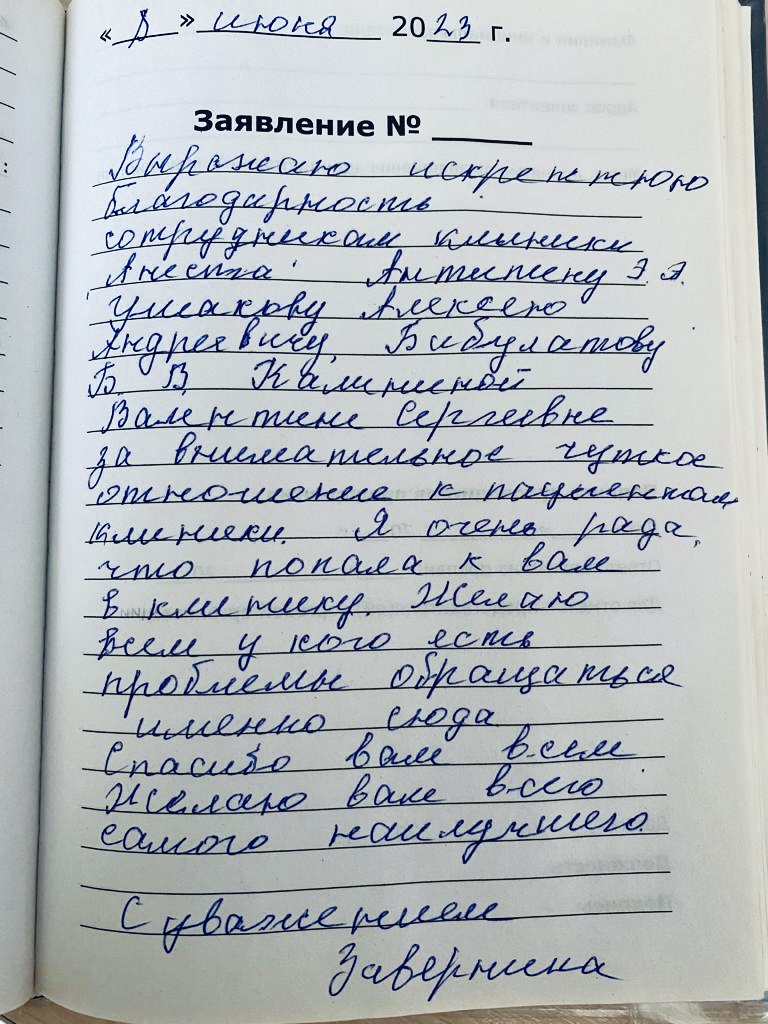 « 8 » июня 2023 г.
Заявление №
Выражаю искреннюю
благодарность
сотрудникам клиники
Анеста Антипину Э. А.
Ушакову Алексею
Андреевичу, Бибулатову
Б. В. Калининой
Валентине Сергеевне
за внимательное чуткое
отношение к пациентам
клиники. Я очень рада,
что попала к вам
в клинику. Желаю
всем у кого есть
проблемы обращаться
именно сюда
Спасибо вам всем
Желаю вам всего
самого наилучшего.
С уважением
Завернина